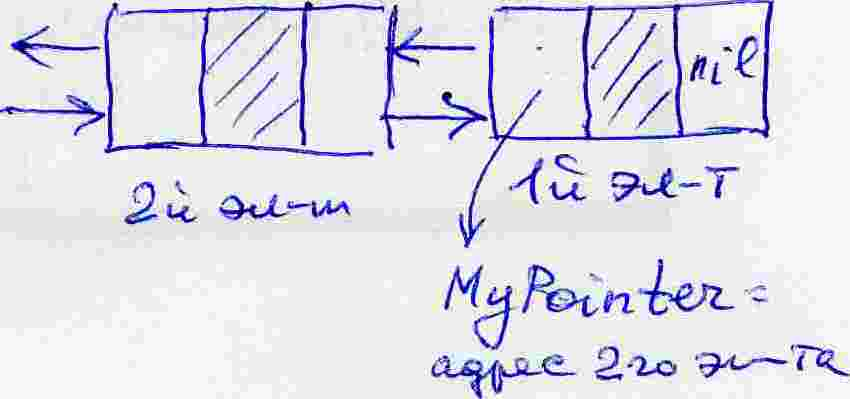 nil
2й эл-т
1й эл-т
MyPointer =
адрес 2го эл-та